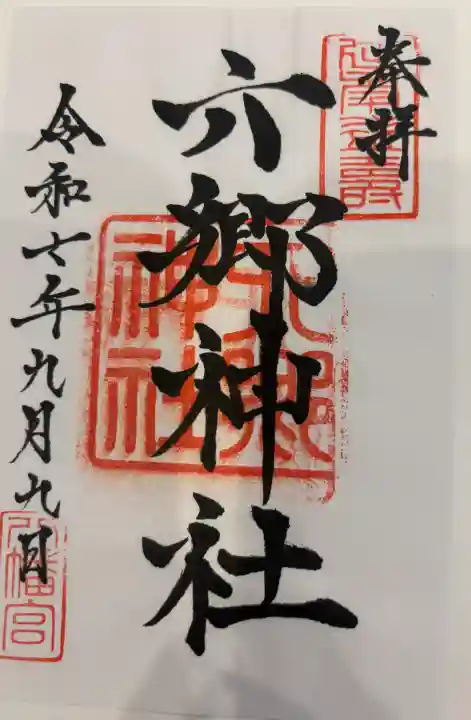 奉拝
六郷神社
令和七年九月九日
六郷
神社
八幡宮